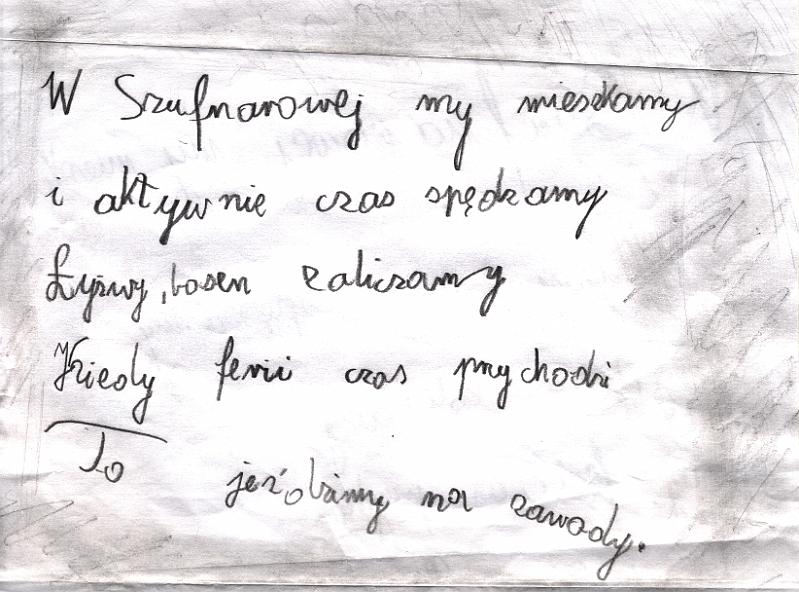 W Szufnarowej my mieszkamy
i aktywnie czas spędzamy
Łyżwy, basen zaliczamy
Kiedy ferii czas przychodzi
To jeździmy na zawody.